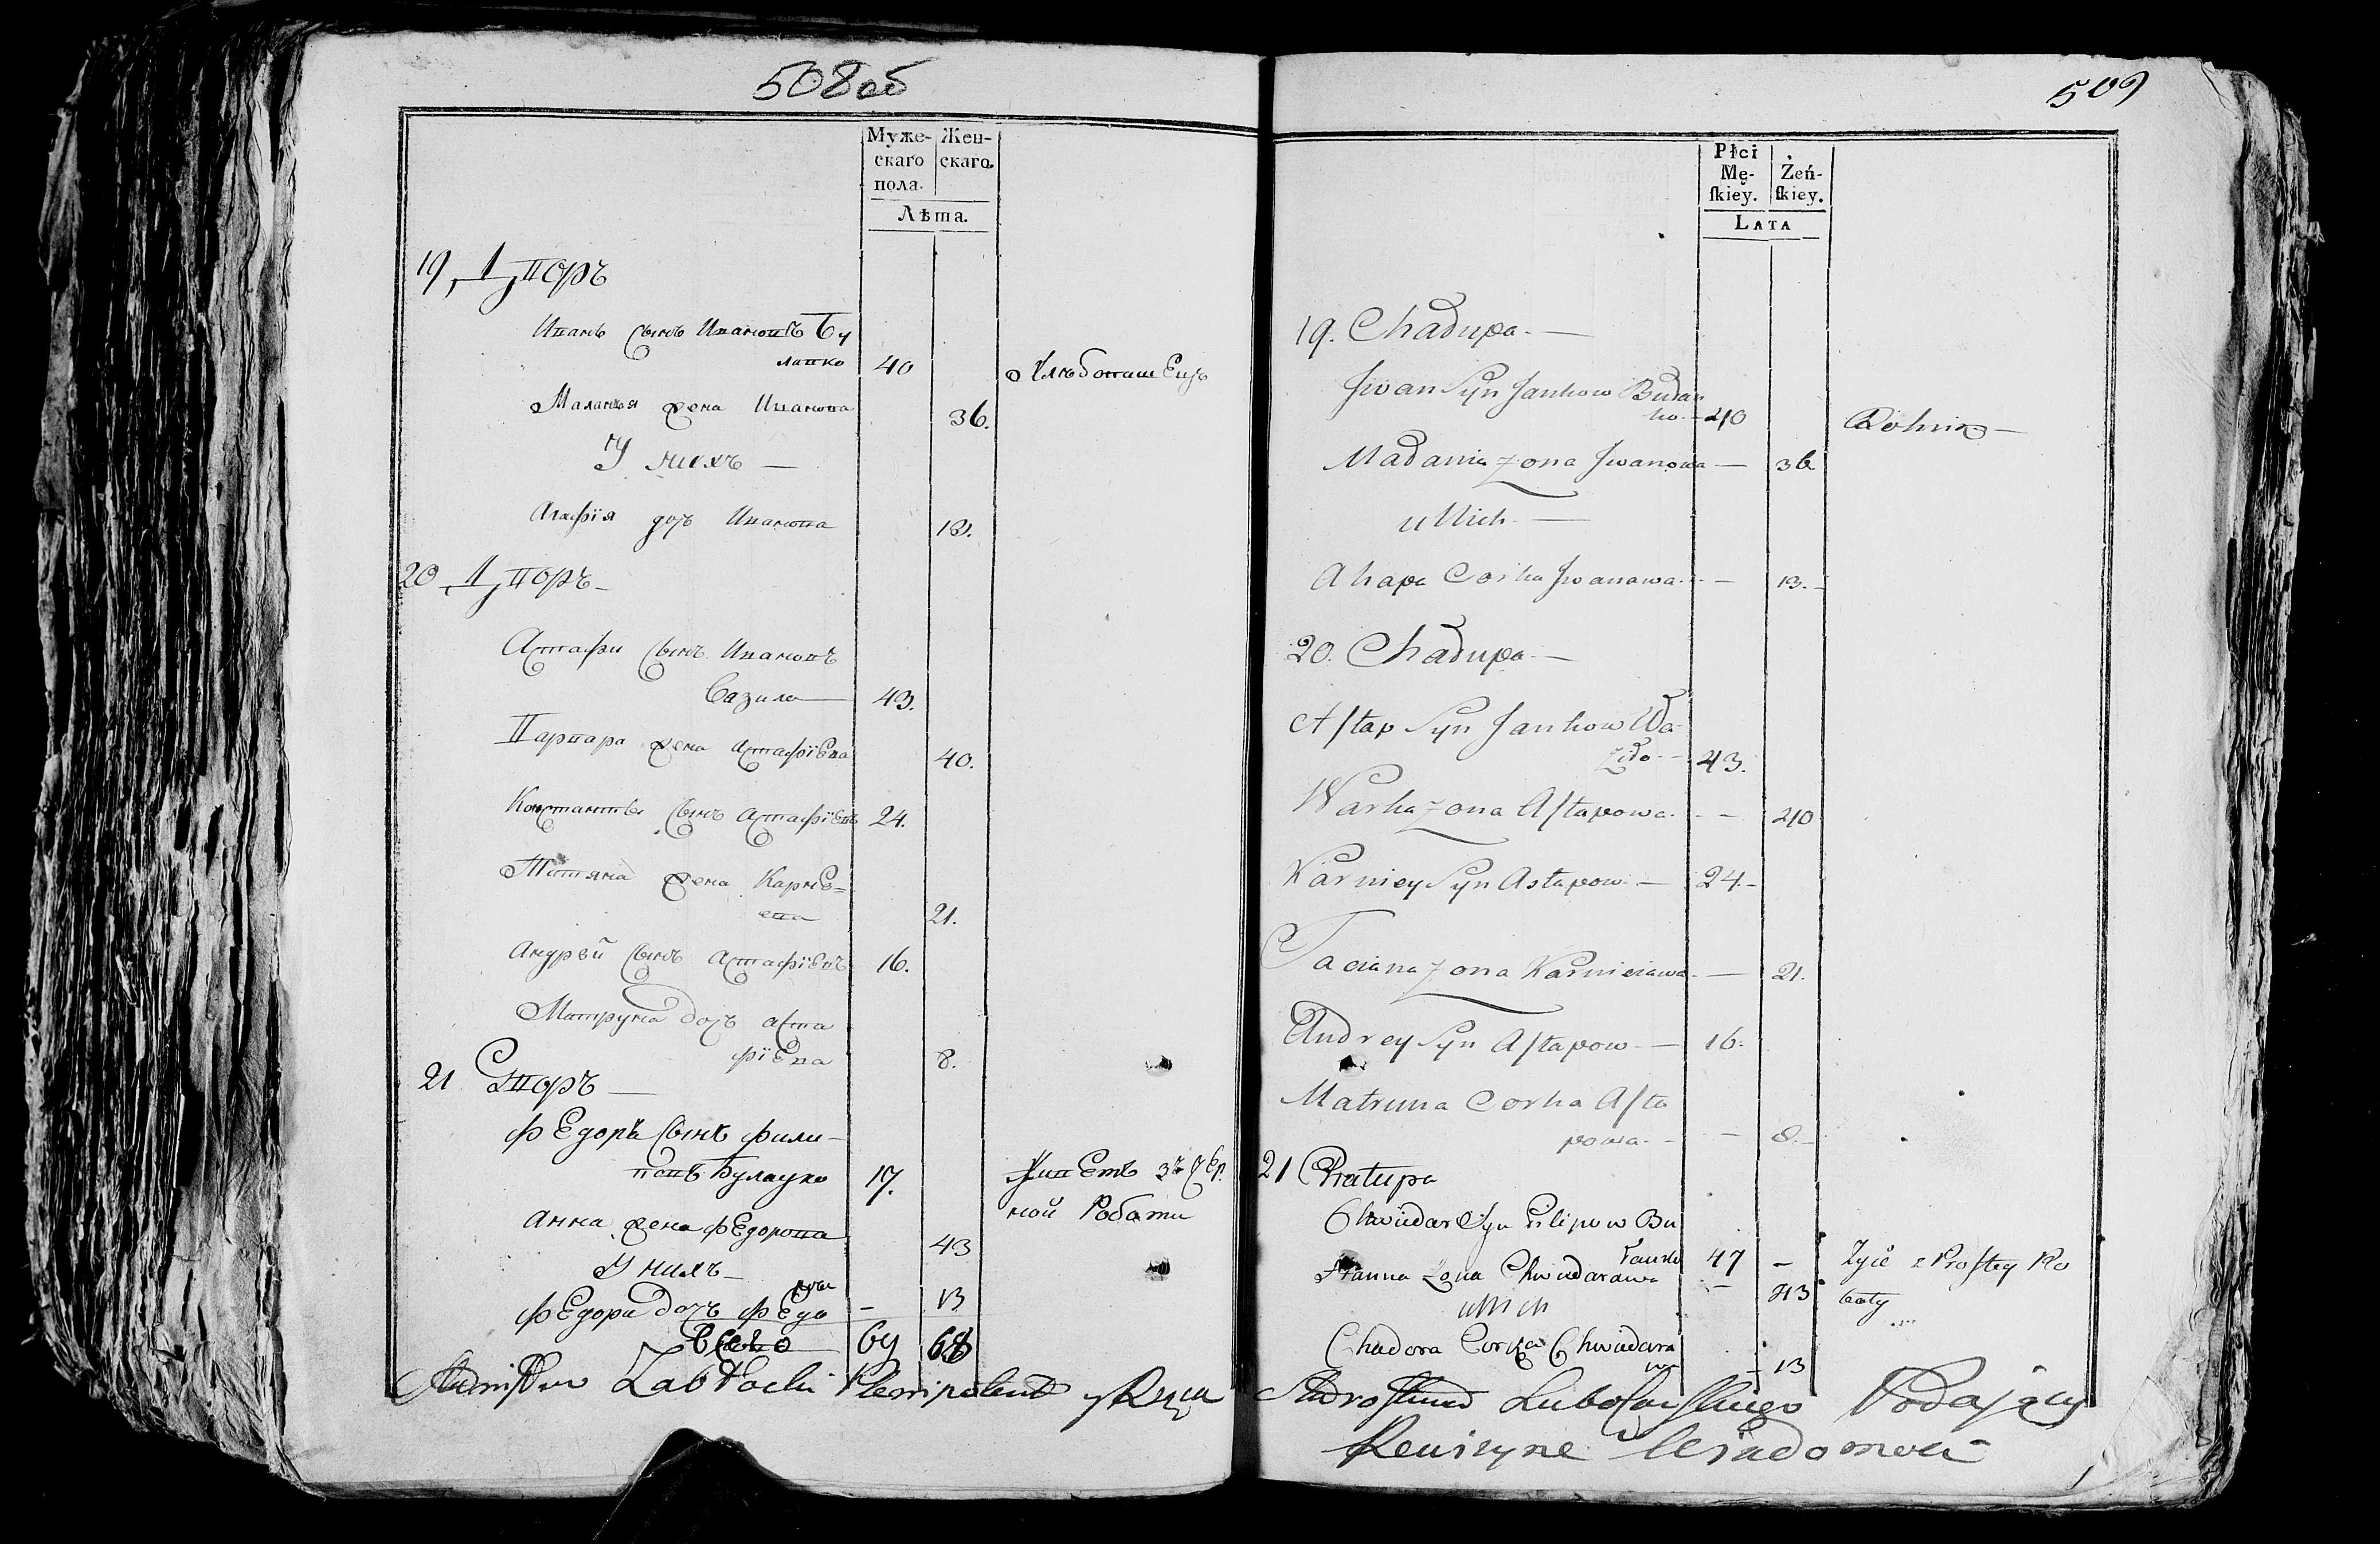 508 об
Муже- Жен-
скаго скаго.
пола.
Лѣта.
19, Дворъ
Иванъ сынъ Ивановъ Бу
лавко 40 Хлѣбопашецъ
Маланья жена Иванова 36.
У нихъ —
Агафія дочь Иванова 13.
20 Дворъ —
Астафи сынъ Ивановъ
Вазило — 43.
Варвара жена Астафіева 40.
Константы сынъ Астафіевъ 24.
Татяна жена Карнѣ=
ева 21.
Андрей сынъ Астафіевъ 16.
Матруна дочь Аста
фіева 8.
21 Дворъ —
Федоръ сынъ Фили-
повъ Булауко 17. Живетъ зъ чер.
ной Работи
Анна жена Федорова 43
У нихъ —
рова
Федора дочь Федо — 13
Всего 64 68
Plenipotent
509
Płci
Mę- Żeń-
ſkiey. ſkiey.
LATA
19. Chałupa. —
Jwan Syn Jankow Buław
ko. — 40 Rolnik —
Małania Zona Jwanowa — 36
u Nich. —
Ahapa Corka Jwanawa. — 13. -
20. Chałupa. —
Aſtap Syn Jankow Wa
ziło. — 43.
Warka Zona Aſtapowa. - — 40
Karniey Syn Astapow. — 24. -
Taciana Zona Karnieiawa. — 21.
Andrey Syn Aſtapow — 16.
Matruna Corka Aſta
powa. - — 8. -
21 Chałupa
Chwiedar Syn Filipow Bu
łauko 47 — Zyie z Proſtey Ro
boty
Hanna Zona Chwiedarawa — 43
u Nich
Chadora Corka Chwiedara
wa — 13
Podaiący
Rewizyne Wiadomoci